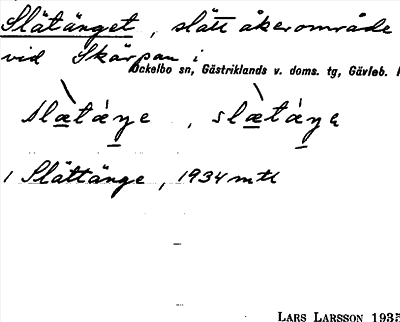 Slätänget, slätt åkerområde
vid Skärpan i
Ockelbo sn, Gästriklands v. doms. tg, Gävleb.
slæ̀táŋe, slæ̀táŋe
1 Slättänge, 1934 mtl
LARS LARSSON 1935